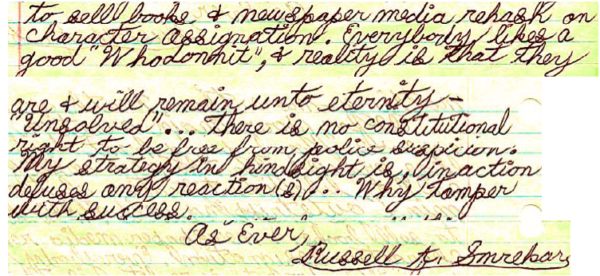 to sell books & newspaper media rehash on
character assignation. Everybody likes a
good "Whodonnit", & reality is that they
are & will remain unto eternity -
"Unsolved"... there is no constitutional
right to be free from police suspicion.
My strategy in hindsight is, inaction
defuses any reaction(s)... Why tamper
with success.
As Ever,
Russell K. Smrekar